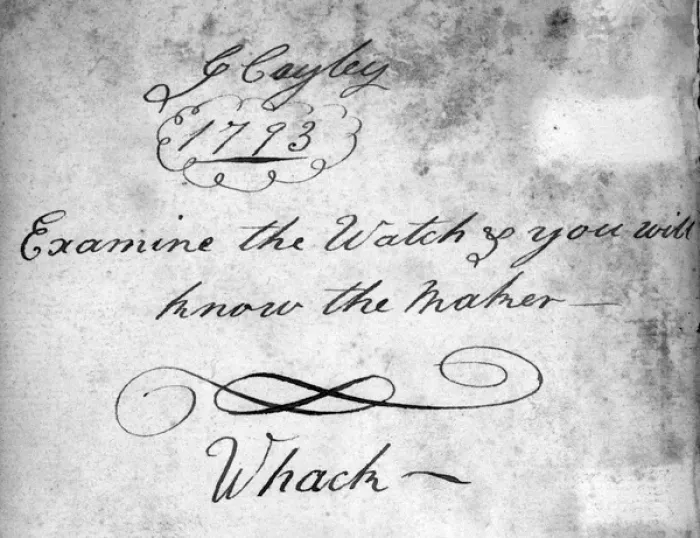 G Cayley
1793
Examine the Watch & you will
know the Maker —
Whack —